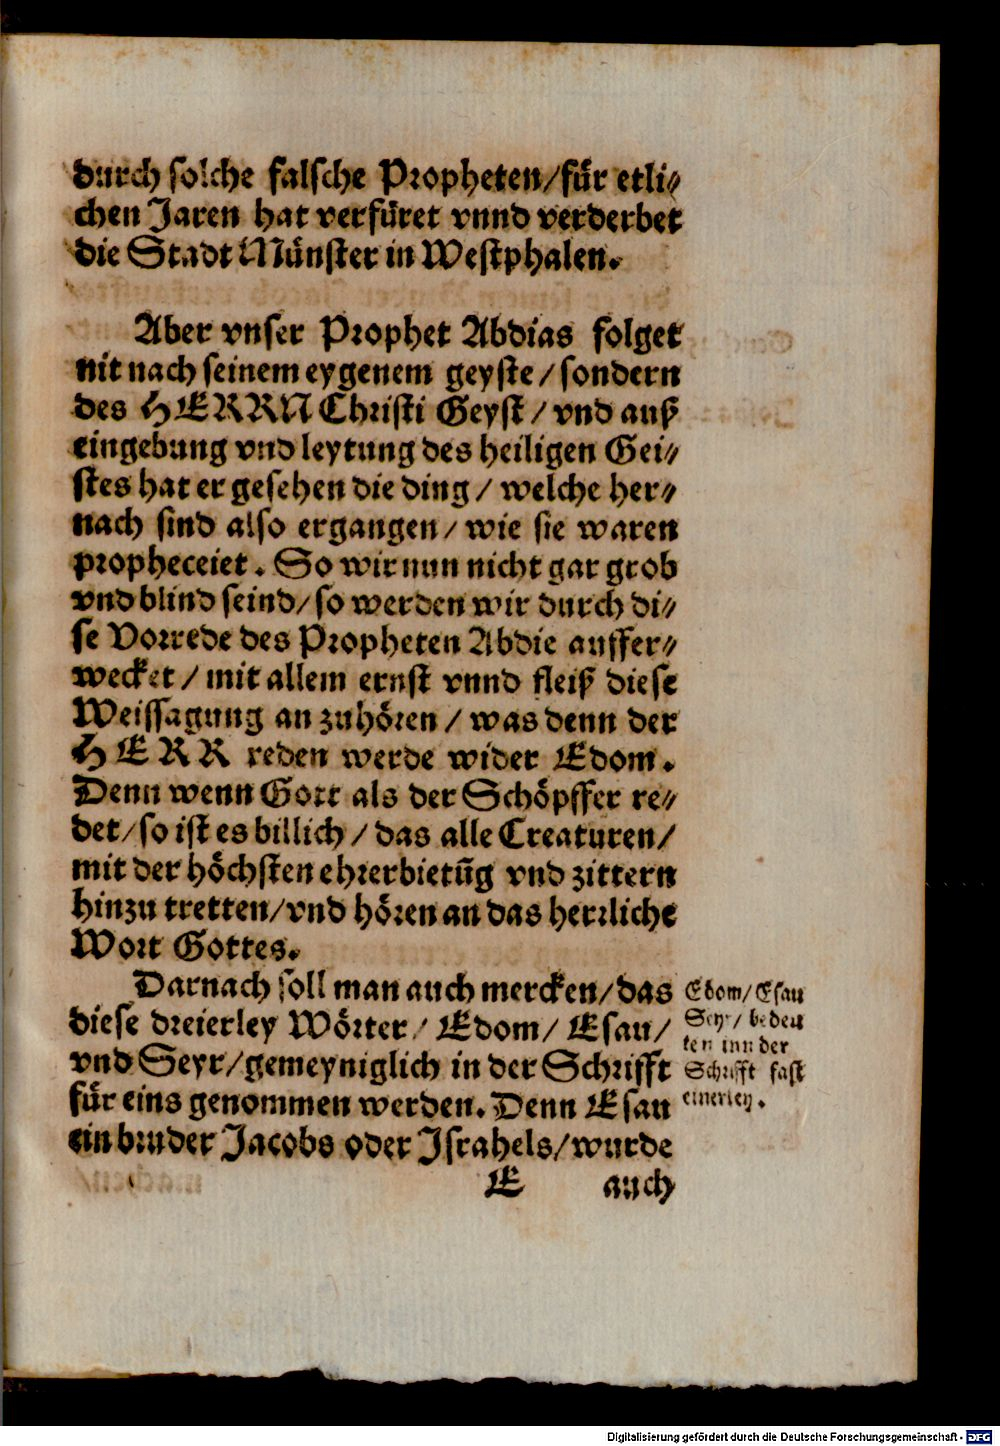 durch solche falsche Propheten/für etli⸗
chen Jaren hat verfüret vnnd verderbet
die Stadt Münster in Westphalen.
Aber vnser Prophet Abdias folget
nit nach seinem eygenem geyste/ sondern
des HERRN Christi Geyst/ vnd auß
eingebung vnd leytung des heiligen Gei⸗
stes hat er gesehen die ding/ welche her⸗
nach sind also ergangen/ wie sie waren
propheceiet. So wir nun nicht gar grob
vnd blind seind/ so werden wir durch di⸗
se Vorrede des Propheten Abdie auffer⸗
wecket/ mit allem ernst vnnd fleiß diese
Weissagung an zuhören/ was denn der
HERR reden werde wider Edom.
Denn wenn Gott als der Schöpffer re⸗
det/ so ist es billich/ das alle Creaturen/
mit der höchsten ehrerbietũg vnd zittern
hinzu tretten/vnd hören an das herrliche
Wort Gottes.
Darnach soll man auch mercken/das
diese dreierley Wörter/ Edom/ Esau/
vnd Seyr/gemeyniglich in der Schrifft
für eins genommen werden. Denn Esau
ein bruder Jacobs oder Israhels/wurde
E auch
Edom/ Esau
Seyr/ bedeu
ten inn der
Schrifft fast
einerley.
Digitalisierung gefördert durch die Deutsche Forschungsgemeinschaft - DFG